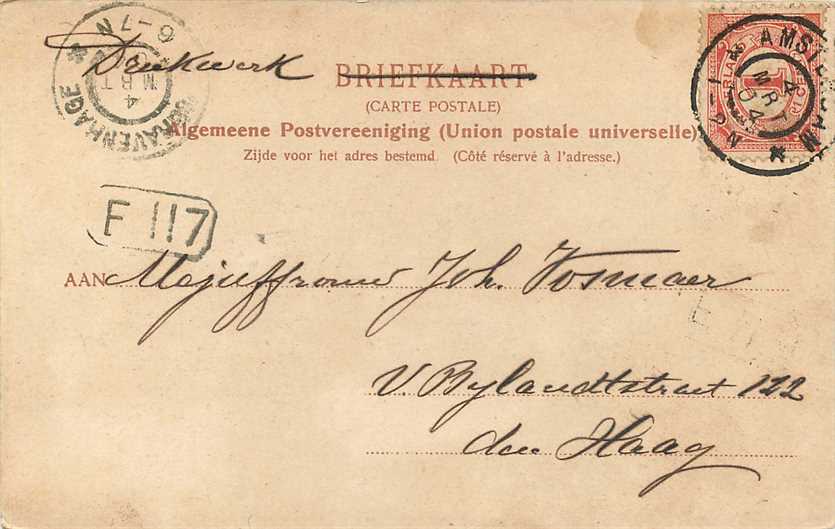 Drukwerk BRIEFKAART
(CARTE POSTALE)
Algemeene Postvereeniging (Union postale universelle)
Zijde voor het adres bestemd. (Côté réservé à l'adresse.)
'S GRAVENHAGE
4 MRT
6-7N
AMSTERDAM
4 MRT 04
F 117
AAN Mejuffrouw Joh. Vosmaer
v. Bylandtstraat 122
den Haag